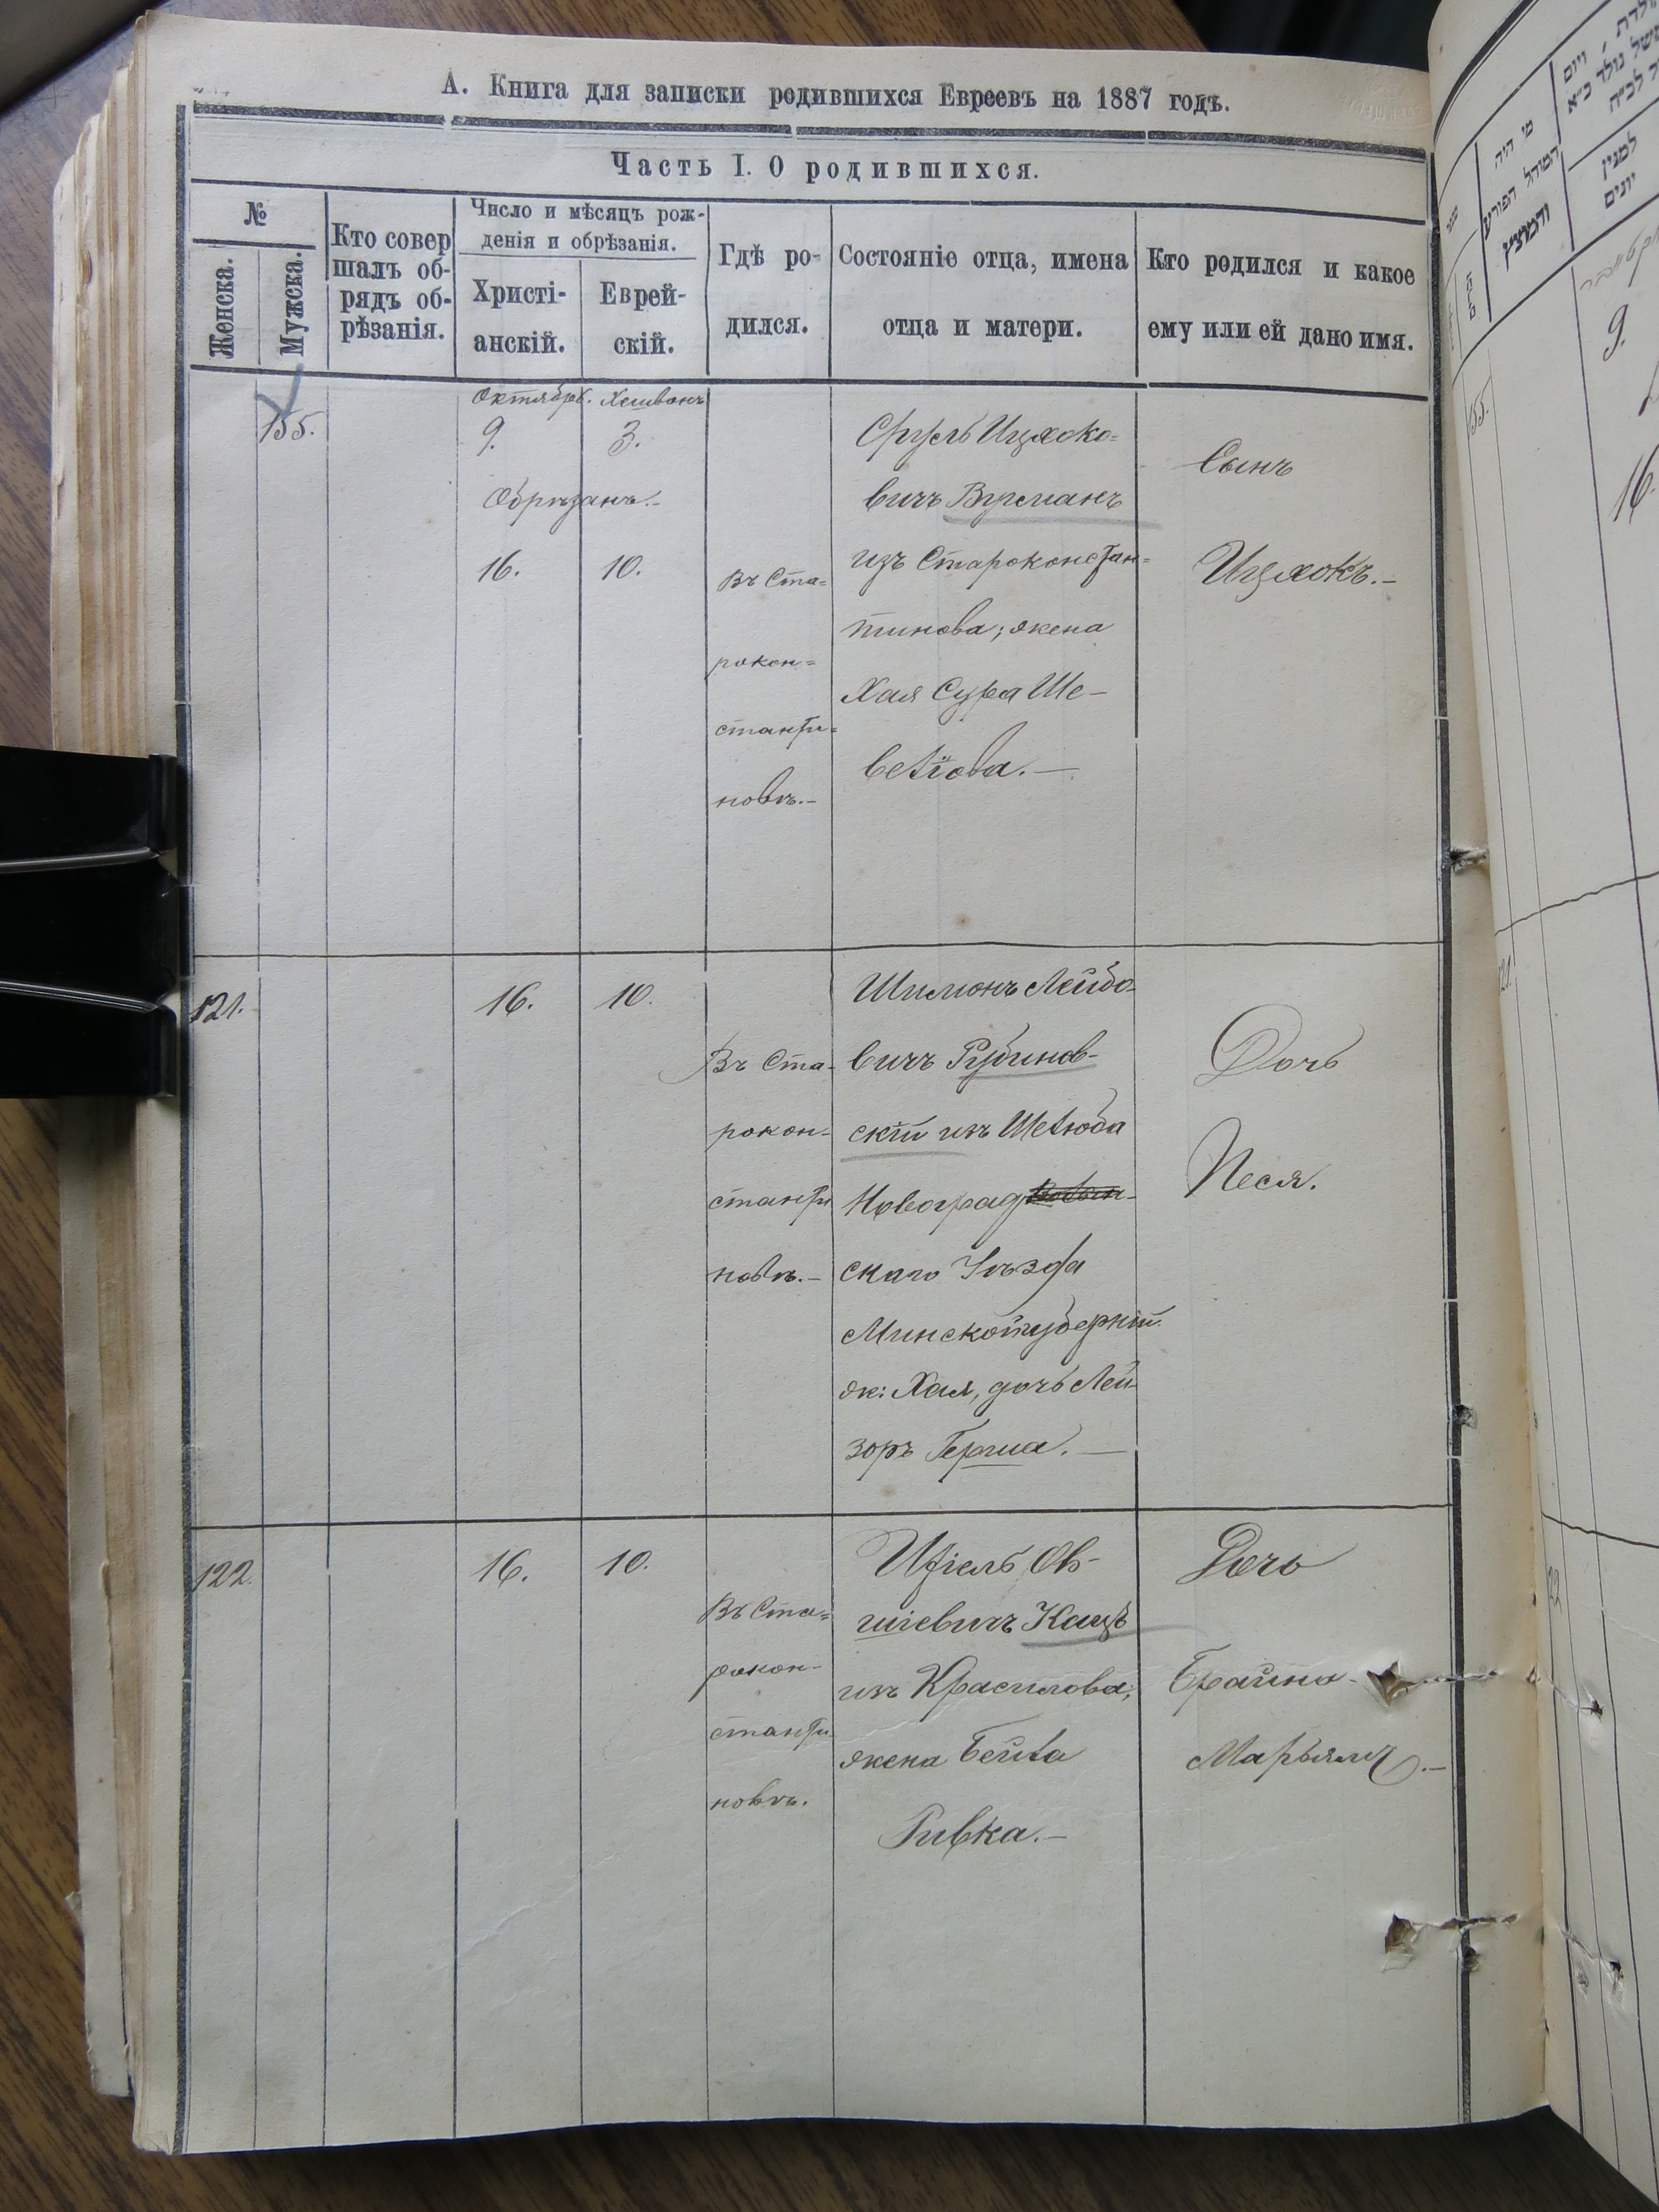 А. Книга для записки родившихся Евреевъ на 1887 годъ.
Часть I. О родившихся.
№
Женска.
Мужска.
Кто совер
шалъ об-
рядъ об-
рѣзанія.
Число и мѣсяцъ рож-
денія и обрѣзанія.
Христі-
анскій.
Еврей-
скій.
Гдѣ ро-
дился.
Состояніе отца, имена
отца и матери.
Кто родился и какое
ему или ей дано имя.
155.
Октябрь. Хешванъ
9. 3.
Обрѣзанъ.-
16. 10.
Въ Ста=
рокон=
станти=
новѣ.-
Сруль Ицхоко=
вичъ Вурманъ
изъ Староконстан=
тинова; жена
Хая Сура Ше-
велiова.-
Сынъ
Ицхокъ.-
121.
16. 10.
Въ Ста-
рокон-
станти
новѣ.-
Шимонъ Лейбо-
вичъ Рубинов-
скій изъ
Новоград
скаго Уѣзда
Минской губерніи.
ж: Хая, дочь Лей
зоръ Герша.-
Дочь
Песя.
122.
16. 10.
Въ Ста=
рокон-
станти
новѣ.
Ихіель Ов-
шіевичъ Кацъ
изъ Красилова;
жена Бейла
Ривка.-
Дочь
Брайна-
Марьямъ.-
מי היה
המוהל הפורע
והמוצץ
למנין
יונים
155.
9.
16.
121.
22